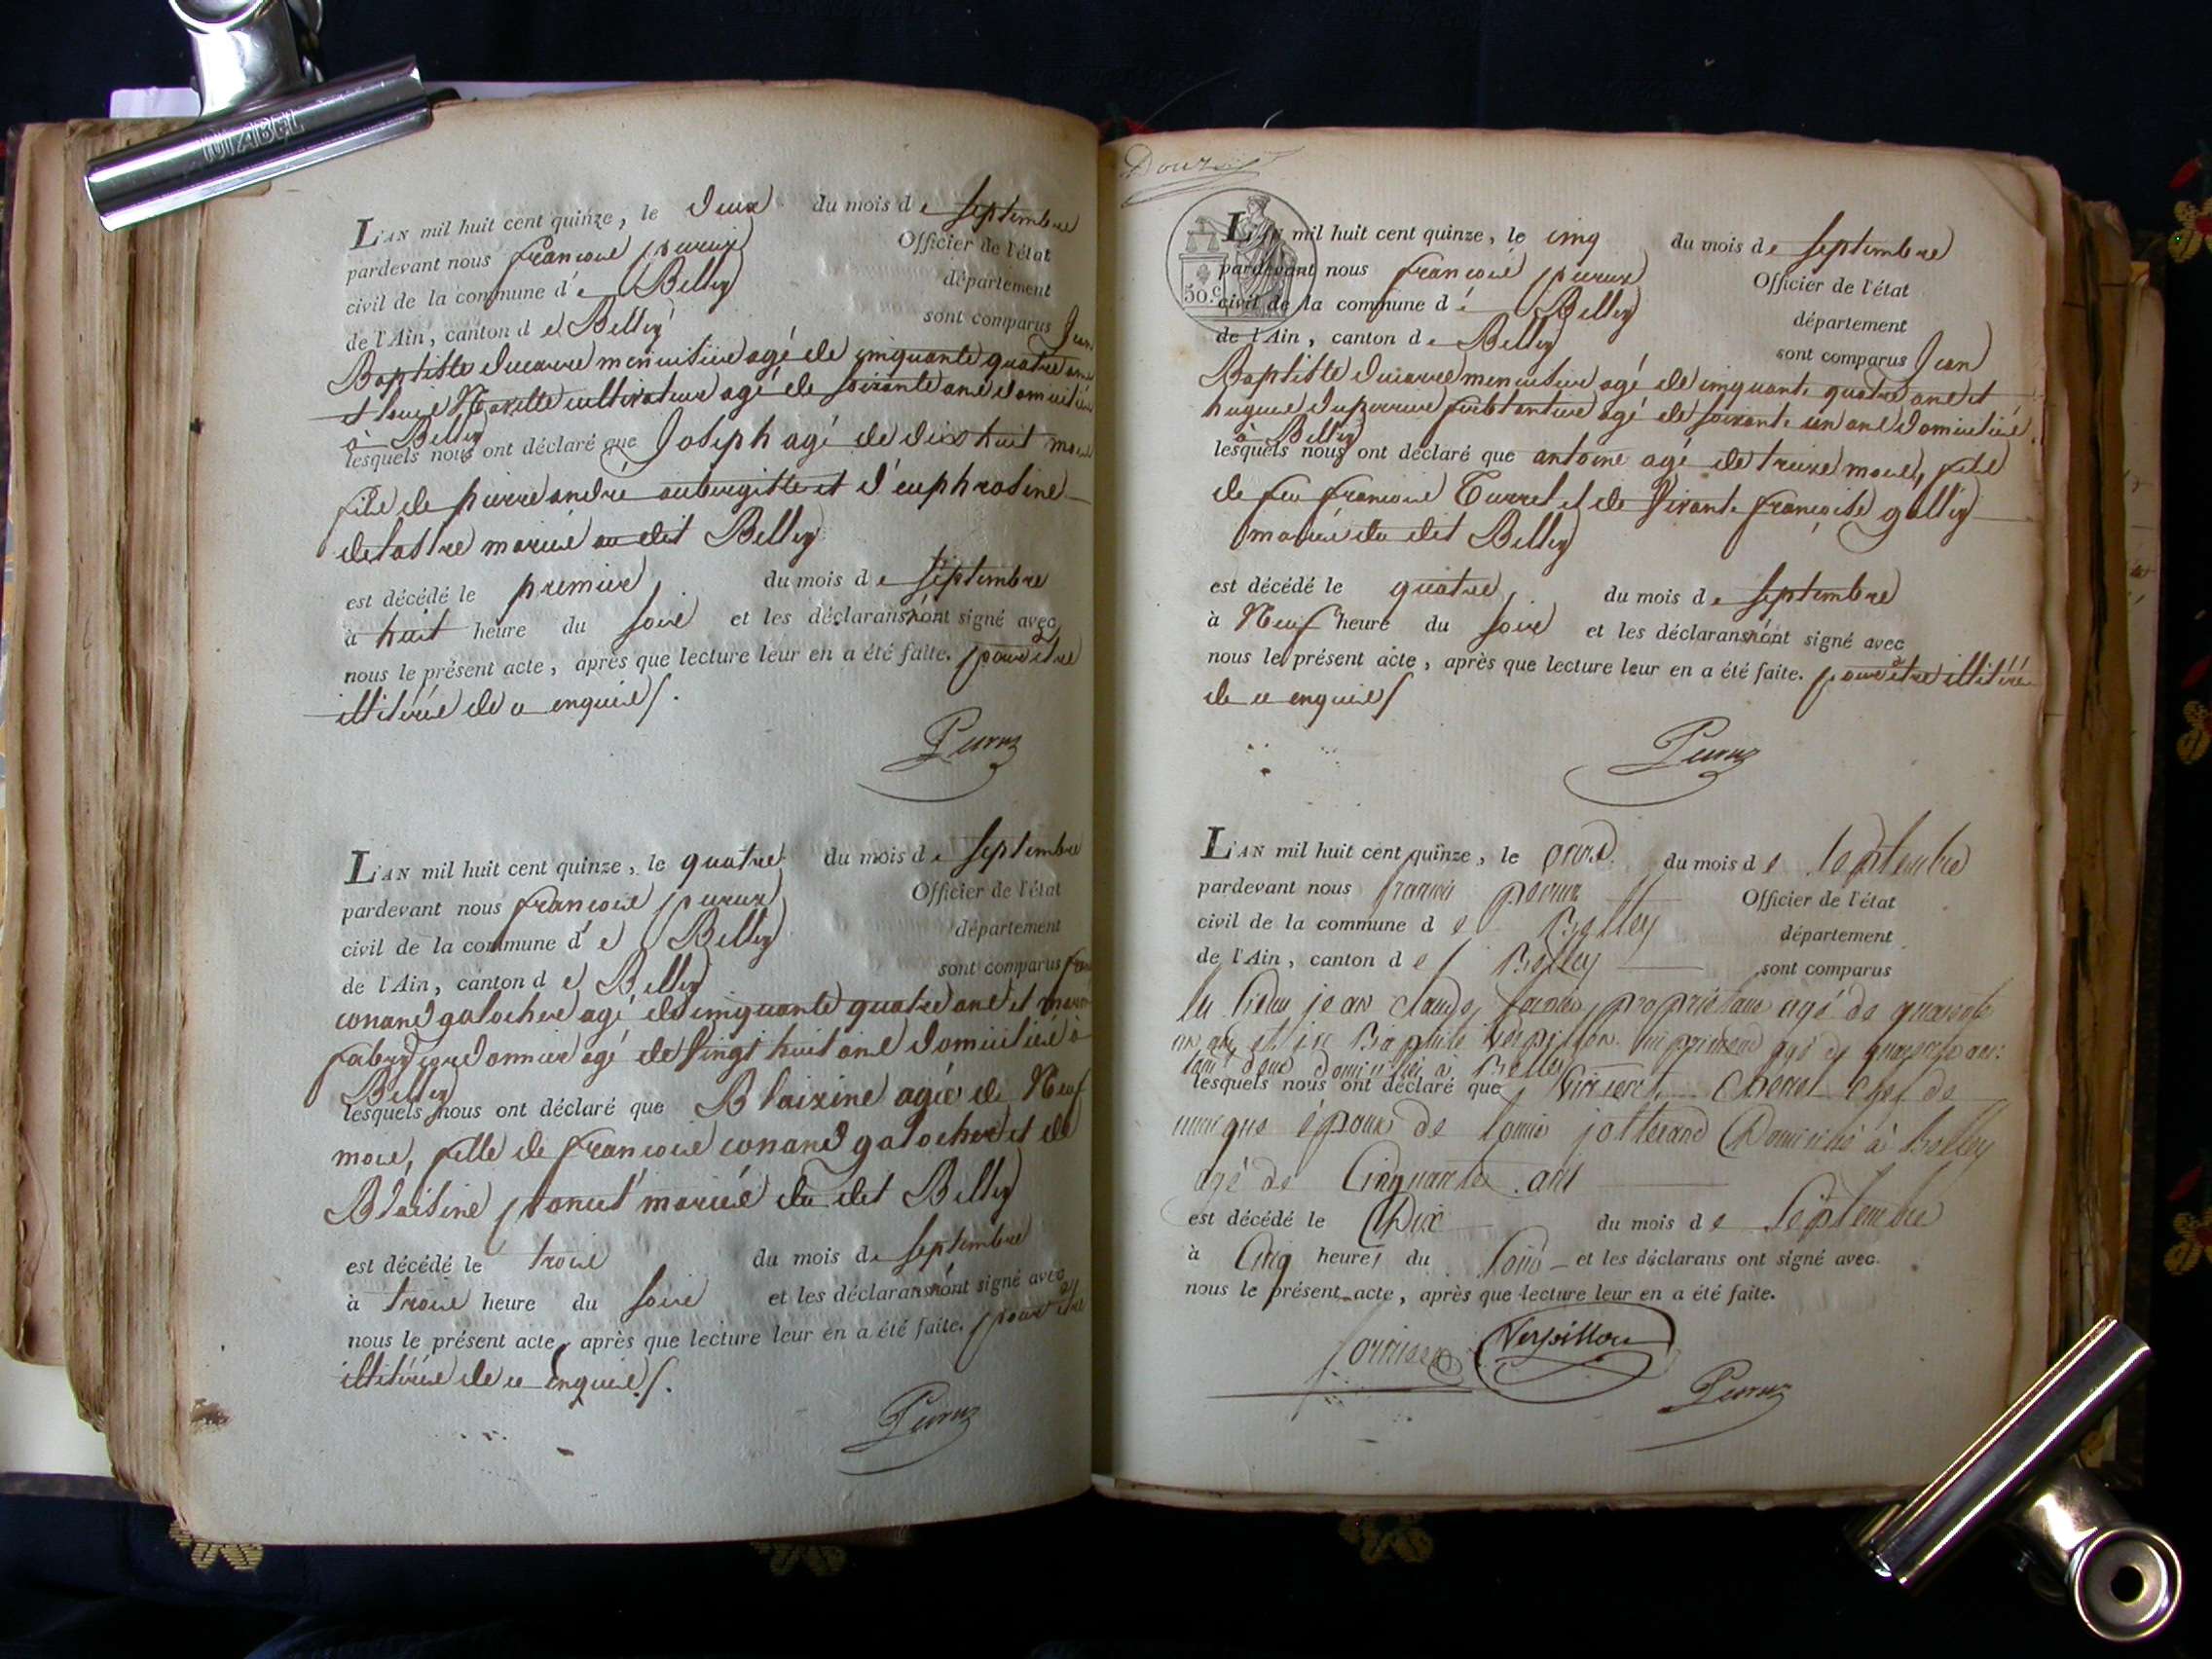 L'AN mil huit cent quinze, le Deux du mois de Septembre
pardevant nous françois peruz Officier de l'état
civil de la commune de Belley département
de l'Ain, canton de Belley sont comparus Jean
Baptiste Ducarre menuisier agé de cinquante quatre ans
et louis cultivateur agé de soixante ans domiciliés
à Belley
lesquels nous ont déclaré que Joseph agé de dix huit mois
fils de pierre andré aubergiste et d'euphrosine
delastre mariés au dit Belley
est décédé le premier du mois de Septembre
à huit heure du soir et les déclarans n'ont signé avec
nous le présent acte, après que lecture leur en a été faite. pour être
illitérés de ce enquis /.
Peruz
L'AN mil huit cent quinze, le quatre du mois de Septembre
pardevant nous françois peruz Officier de l'état
civil de la commune de Belley département
de l'Ain, canton de Belley sont comparus
conand galocher agé de cinquante quatre ans et
fabry cordonnier agé de Vingt huit ans domiciliés à
Belley
lesquels nous ont déclaré que Blaizine agée de Neuf
mois, fille de françois conand galocher et de
Blaisine poncet mariés du dit Belley
est décédé le trois du mois de Septembre
à trois heure du soir et les déclarans n'ont signé avec
nous le présent acte, après que lecture leur en a été faite. pour être
illitérés de ce enquis /.
Peruz
L'AN mil huit cent quinze, le cinq du mois de Septembre
50 c.
pardevant nous françois peruz Officier de l'état
civil de la commune de Belley département
de l'Ain, canton de Belley sont comparus Jean
Baptiste Ducarre menuisier agé de cinquante quatre ans et
hugues duperrier agé de soixante un ans domiciliés
à Belley
lesquels nous ont déclaré que antoine agé de treize mois, fils
de feu françois Curret et de Vivante françoise galley
mariés du dit Belley
est décédé le quatre du mois de Septembre
à Neuf heure du soir et les déclarans n'ont signé avec
nous le présent acte, après que lecture leur en a été faite. pour être illitérés
de ce enquis /
Peruz
L'AN mil huit cent quinze, le onze du mois de Septembre
pardevant nous françois peruz Officier de l'état
civil de la commune de Belley département
de l'Ain, canton de Belley sont comparus
les sieurs jean claude propriétaire agé de quarante
un ans et jn Baptiste Verpillon imprimeur agé de quarante ans
tous deux domiciliés à Belley
lesquels nous ont déclaré que Vincent chef de
musique époux de louise jotterand Domicilié à Belley
agé de Cinquante ans
est décédé le Dix du mois de Septembre
à Cinq heures du soir et les déclarans ont signé avec
nous le présent acte, après que lecture leur en a été faite.
Verpillon
Peruz